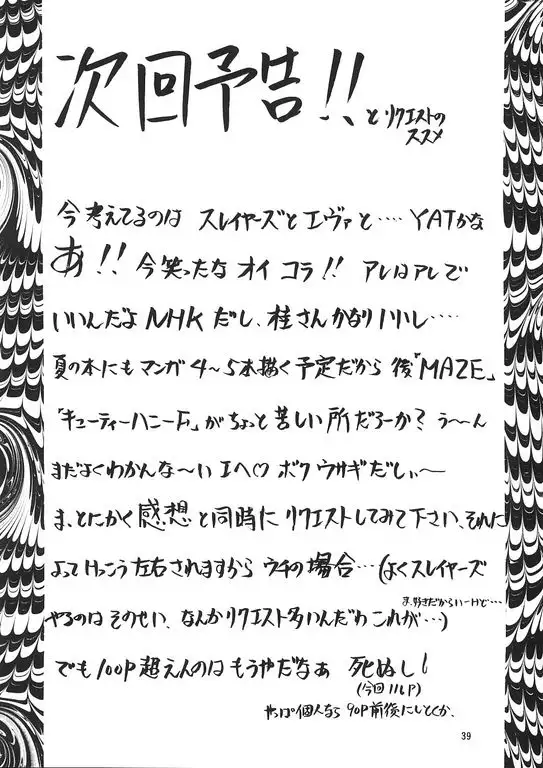 次回予告!! と リクエストの
ススメ
今考えてるのは スレイヤーズとエヴァと‥‥ YATかな
あ!! 今笑ったな オイ コラ!! アレはアレで
いいんだよ NHKだし、桂さんかなりいいし‥‥
夏の本にもマンガ 4〜5本描く予定だから 後「MAZE」
「キューティーハニーF」がちょっと苦しい所だろーか? う〜〜ん
まだよくわかんな〜い エヘ♡ ボク ウサギだしぃ〜
ま、とにかく 感想と同時に リクエストしてみて下さい、それに
よってけっこう左右されますから ウチの場合…(よくスレイヤーズ
やるのは そのせい、なんかリクエスト多いんだわ これが…)
ま、好きだからいーけど…
でも 100P超えんのはもうやだなぁ 死ぬし!
(今回116P)
やっぱ個人なら 90P前後にしとくか、
39